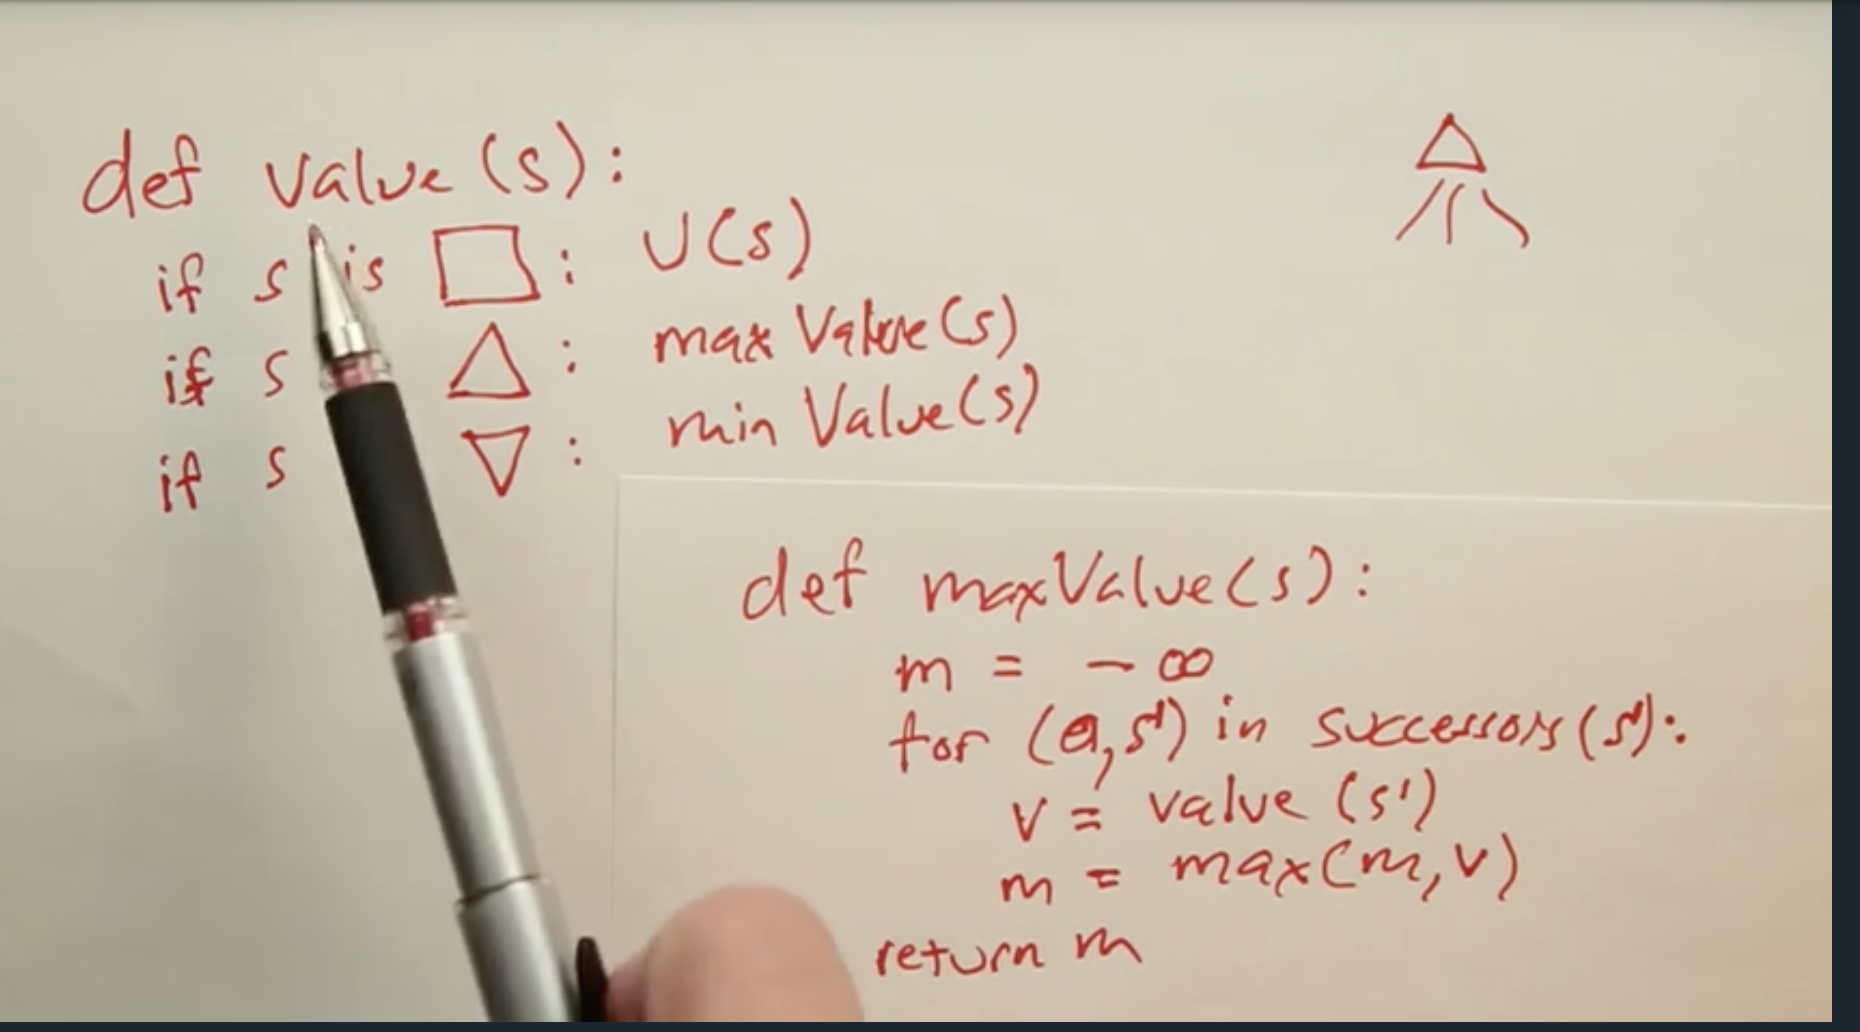 def value(s):
if s is □: U(s)
if s △: maxValue(s)
if s ▽: minValue(s)
def maxValue(s):
m = -∞
for (a,s') in successors(s):
v = value(s')
m = max(m,v)
return m